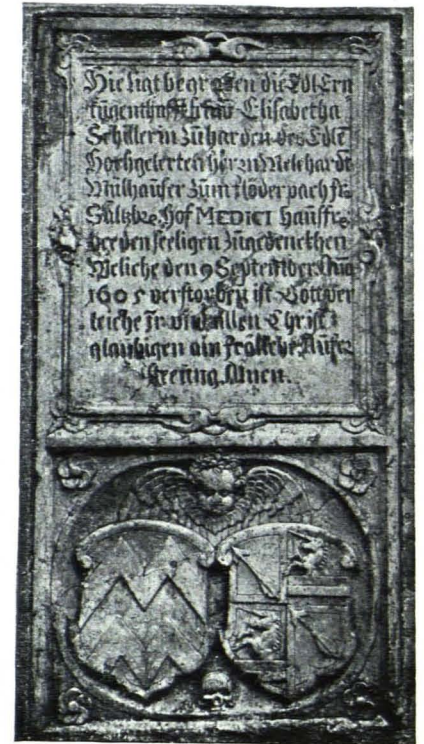 Hie ligt begraben die Edl Ern
tugenthafft frau Elisabetha
Schillerin zu harden des Edlē
Hochgelerten herrn Melchardt
Mülhauser zum
Saltzb: Hof MEDICI hausfr:
der seeligen zugedenckhen
Weliche den 9 September Aug
1605 verstorben ist Gott ver
leiche Ir und allen Christ
glaubigen ain froliche Aufer
steeung Amen.